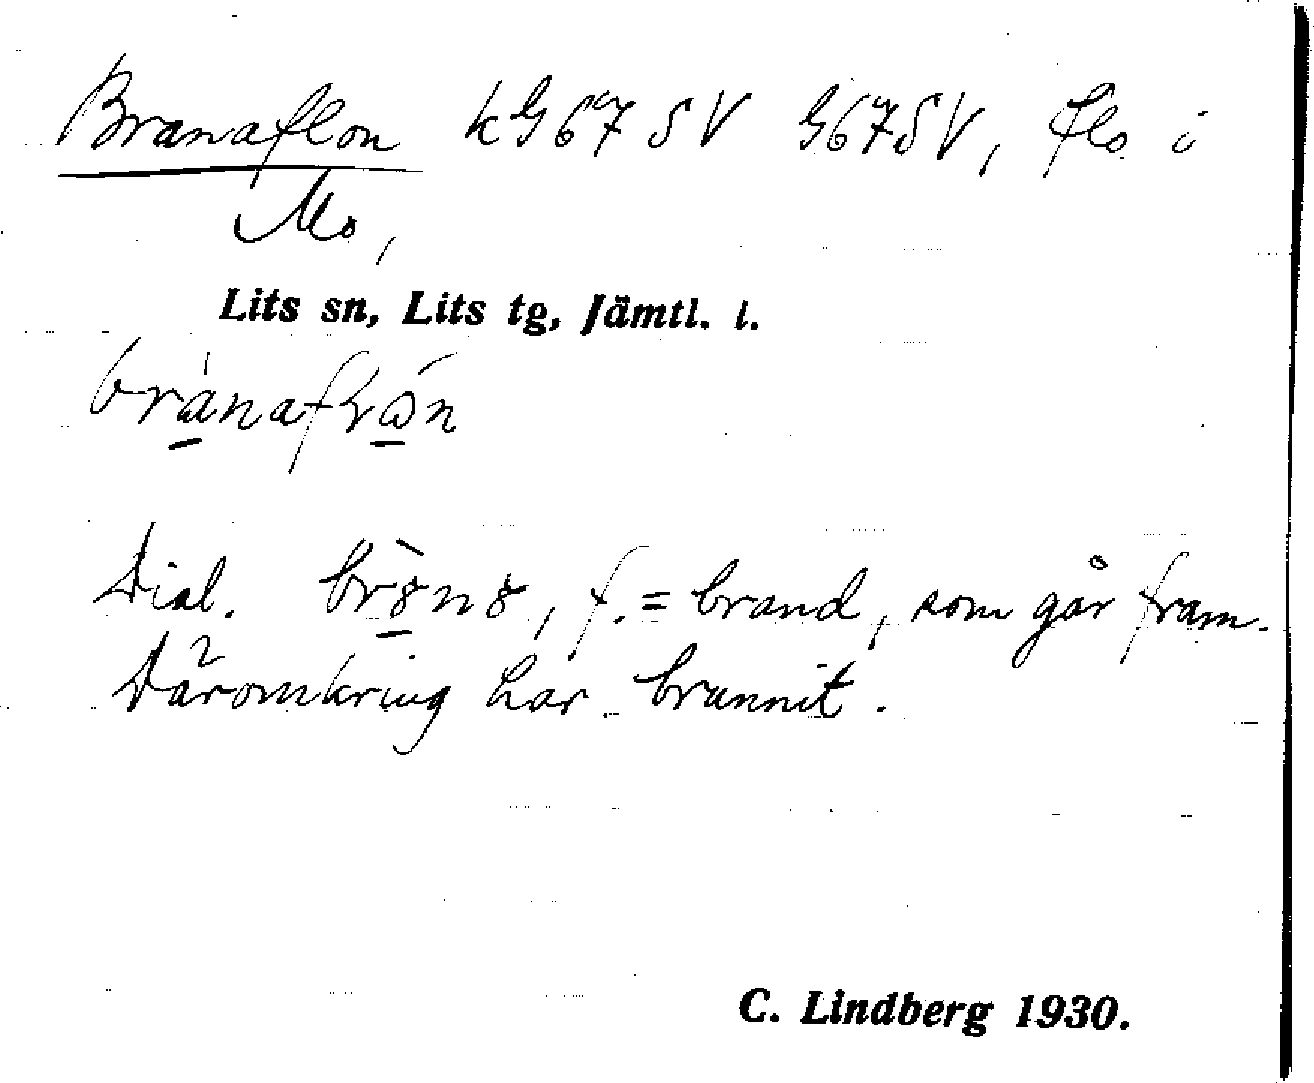 Branaflon kG67SV G67SV, flo i
Mo,
Lits sn, Lits tg, Jämtl. l.
Dial. f. = brand, som går fram.
Däromkring har brunnit.
C. Lindberg 1930.